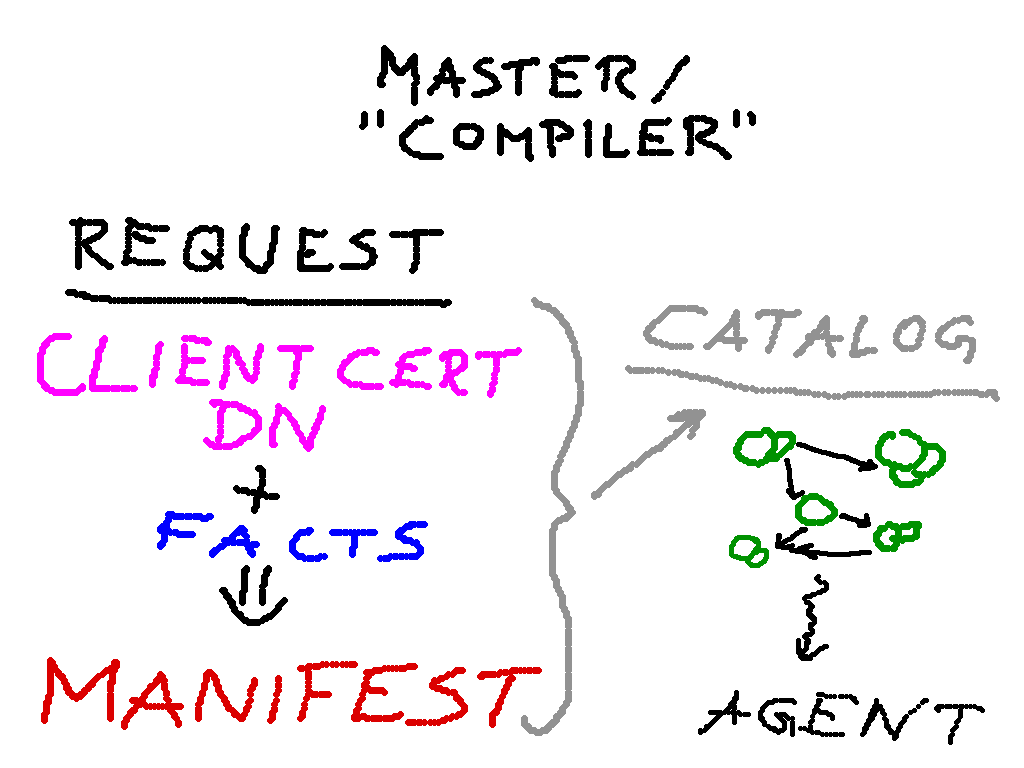 MASTER/
"COMPILER"
REQUEST
CLIENT CERT
DN
+
FACTS
MANIFEST
CATALOG
AGENT